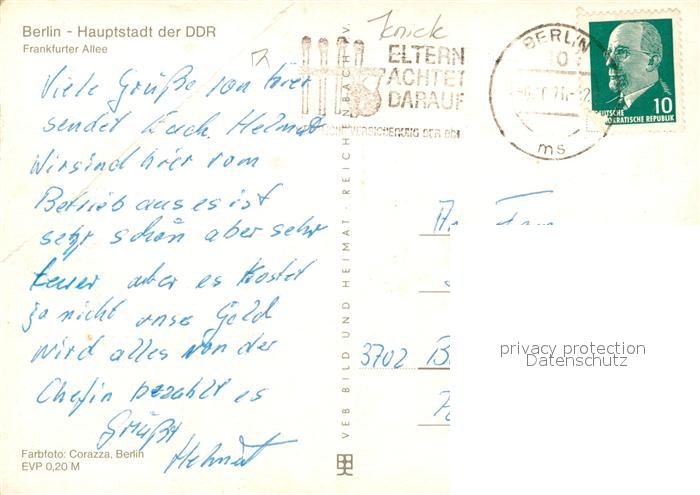 Berlin - Hauptstadt der DDR
Frankfurter Allee
Knick
Viele Grüße von hier
sendet Euch Helmut
Wir sind hier vom
Betrieb aus es ist
sehr schön aber sehr
teuer aber es kostet
ja nicht unse Geld
wird alles von der
Chefin bezahlt es
Grüßt
Helmut
Farbfoto: Corazza, Berlin
EVP 0,20 M
VEB BILD UND HEIMAT · REICHENBACH
ELTERN
ACHTET
DARAUF
BERLIN
ms
10
DEUTSCHE
DEMOKRATISCHE REPUBLIK
3702
privacy protection
Datenschutz